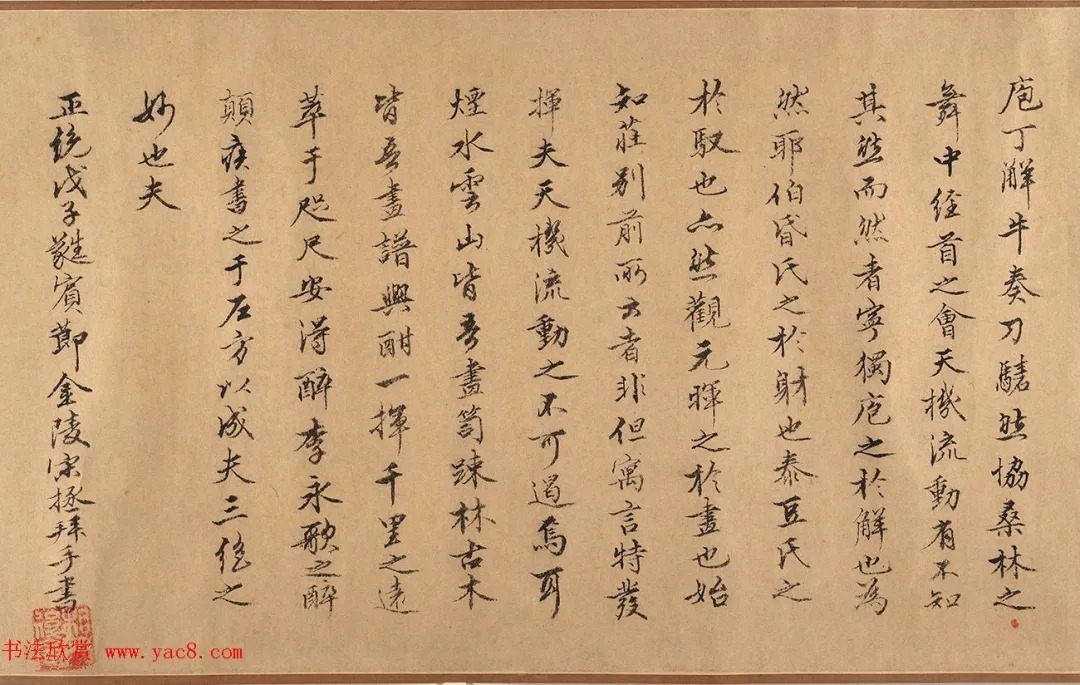 庖丁解牛奏刀騞然協桑林之
舞中經首之會天機流動有不知
其然而然者寧獨庖之於解也為
然耶伯昏氏之於射也泰豆氏之
於馭也亦然觀元暉之於畫也始
知莊列前所云者非但寓言特發
揮夫天機流動之不可遏焉耳
煙水雲山皆吾畫笥疎林古木
皆吾畫譜興酣一揮千里之遠
萃于咫尺安得醉李永歌之醉
顛疾書之于左方以成夫三絕之
妙也夫
正統戊子蕤賓節金陵宋拯拜手書
书法欣赏 www.yac8.com